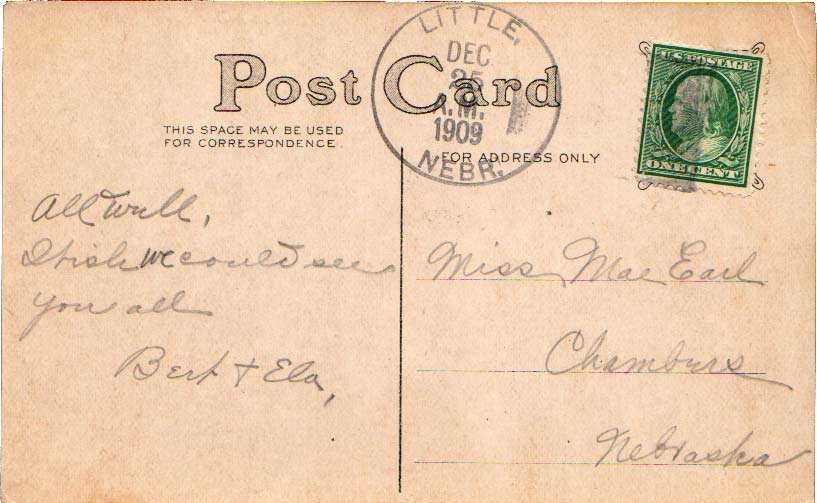 Post Card
THIS SPACE MAY BE USED
FOR CORRESPONDENCE
FOR ADDRESS ONLY
LITTLE,
DEC
25
A.M.
1909
NEBR.
U.S. POSTAGE
ONE CENT
All well,
I wish we could see
you all
Bert + Ela,
Miss Mae Earl
Chambers
Nebraska